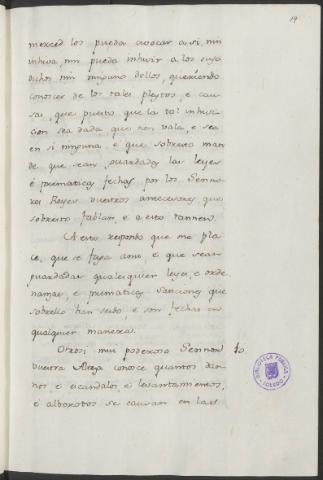 19
merced los pueda avocar a si, nin
inhiva, nin pueda inhivir a los suso
dichos nin ninguno dellos, queriendo
conocer de los tales pleytos, e cau-
sas, que puesto que la tal inhivi-
cion sea dada que non vala, e sea
en si ninguna, e que sobresto man
de que sean guardadas las leyes
é prematicas fechas por los Senno-
res Reyes vuestros antecesores que
sobresto fablan, e a esto tannen.
A esto respondo que me pla-
ce, que se faga ansi, e que sean
guardadas qualesquier leyes, e orde
nanzas, e prematicas sanciones que
sobrello han seido, e son fechas en
qualquier manera.
Otrosi mui poderoso Sennor 10.
vuestra Alteza conoce quantos dan-
nos e escandalos, é levantamientos,
é alborotos se causan en las
BIBLIOTECA PUBLICA
TOLEDO